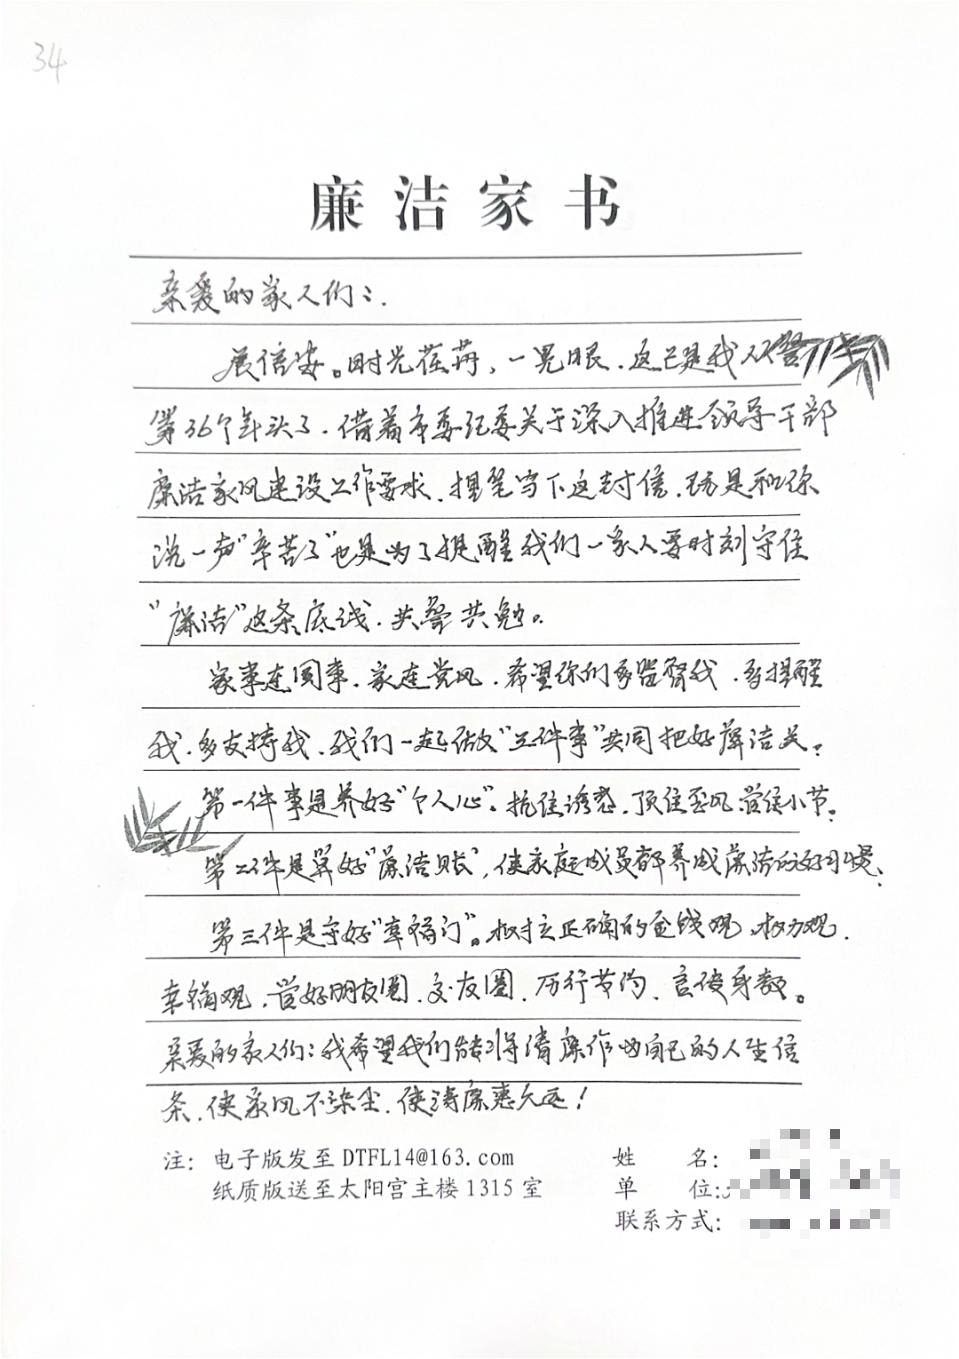 34
廉洁家书
亲爱的家人们：
展信安。时光荏苒，一晃眼，这已是我从警
第36个年头了，借着市委纪委关于深入推进领导干部
廉洁家风建设工作要求，提笔写下这封信，既是和你
说一声“辛苦了”也是为了提醒我们一家人要时刻守住
“廉洁”这条底线，共警共勉。
家事连国事，家连党风，希望你们多监督我，多提醒
我，多支持我，我们一起做“三件事”共同把好廉洁关：
第一件事是养好“个人心”。抗住诱惑，顶住歪风，管住小节。
第二件是算好“廉洁账”，使家庭成员都养成廉洁的好习惯、
第三件是守好“幸福门”。树立正确的金钱观、权力观、
幸福观，管好朋友圈，交友圈，厉行节约，言传身教。
亲爱的家人们：我希望我们能习得清廉作为自己的人生信
条，使家风不染尘，使清廉惠久远！
注：电子版发至 DTFL14@163.com
纸质版送至太阳宫主楼 1315 室
姓名：
单位：
联系方式：